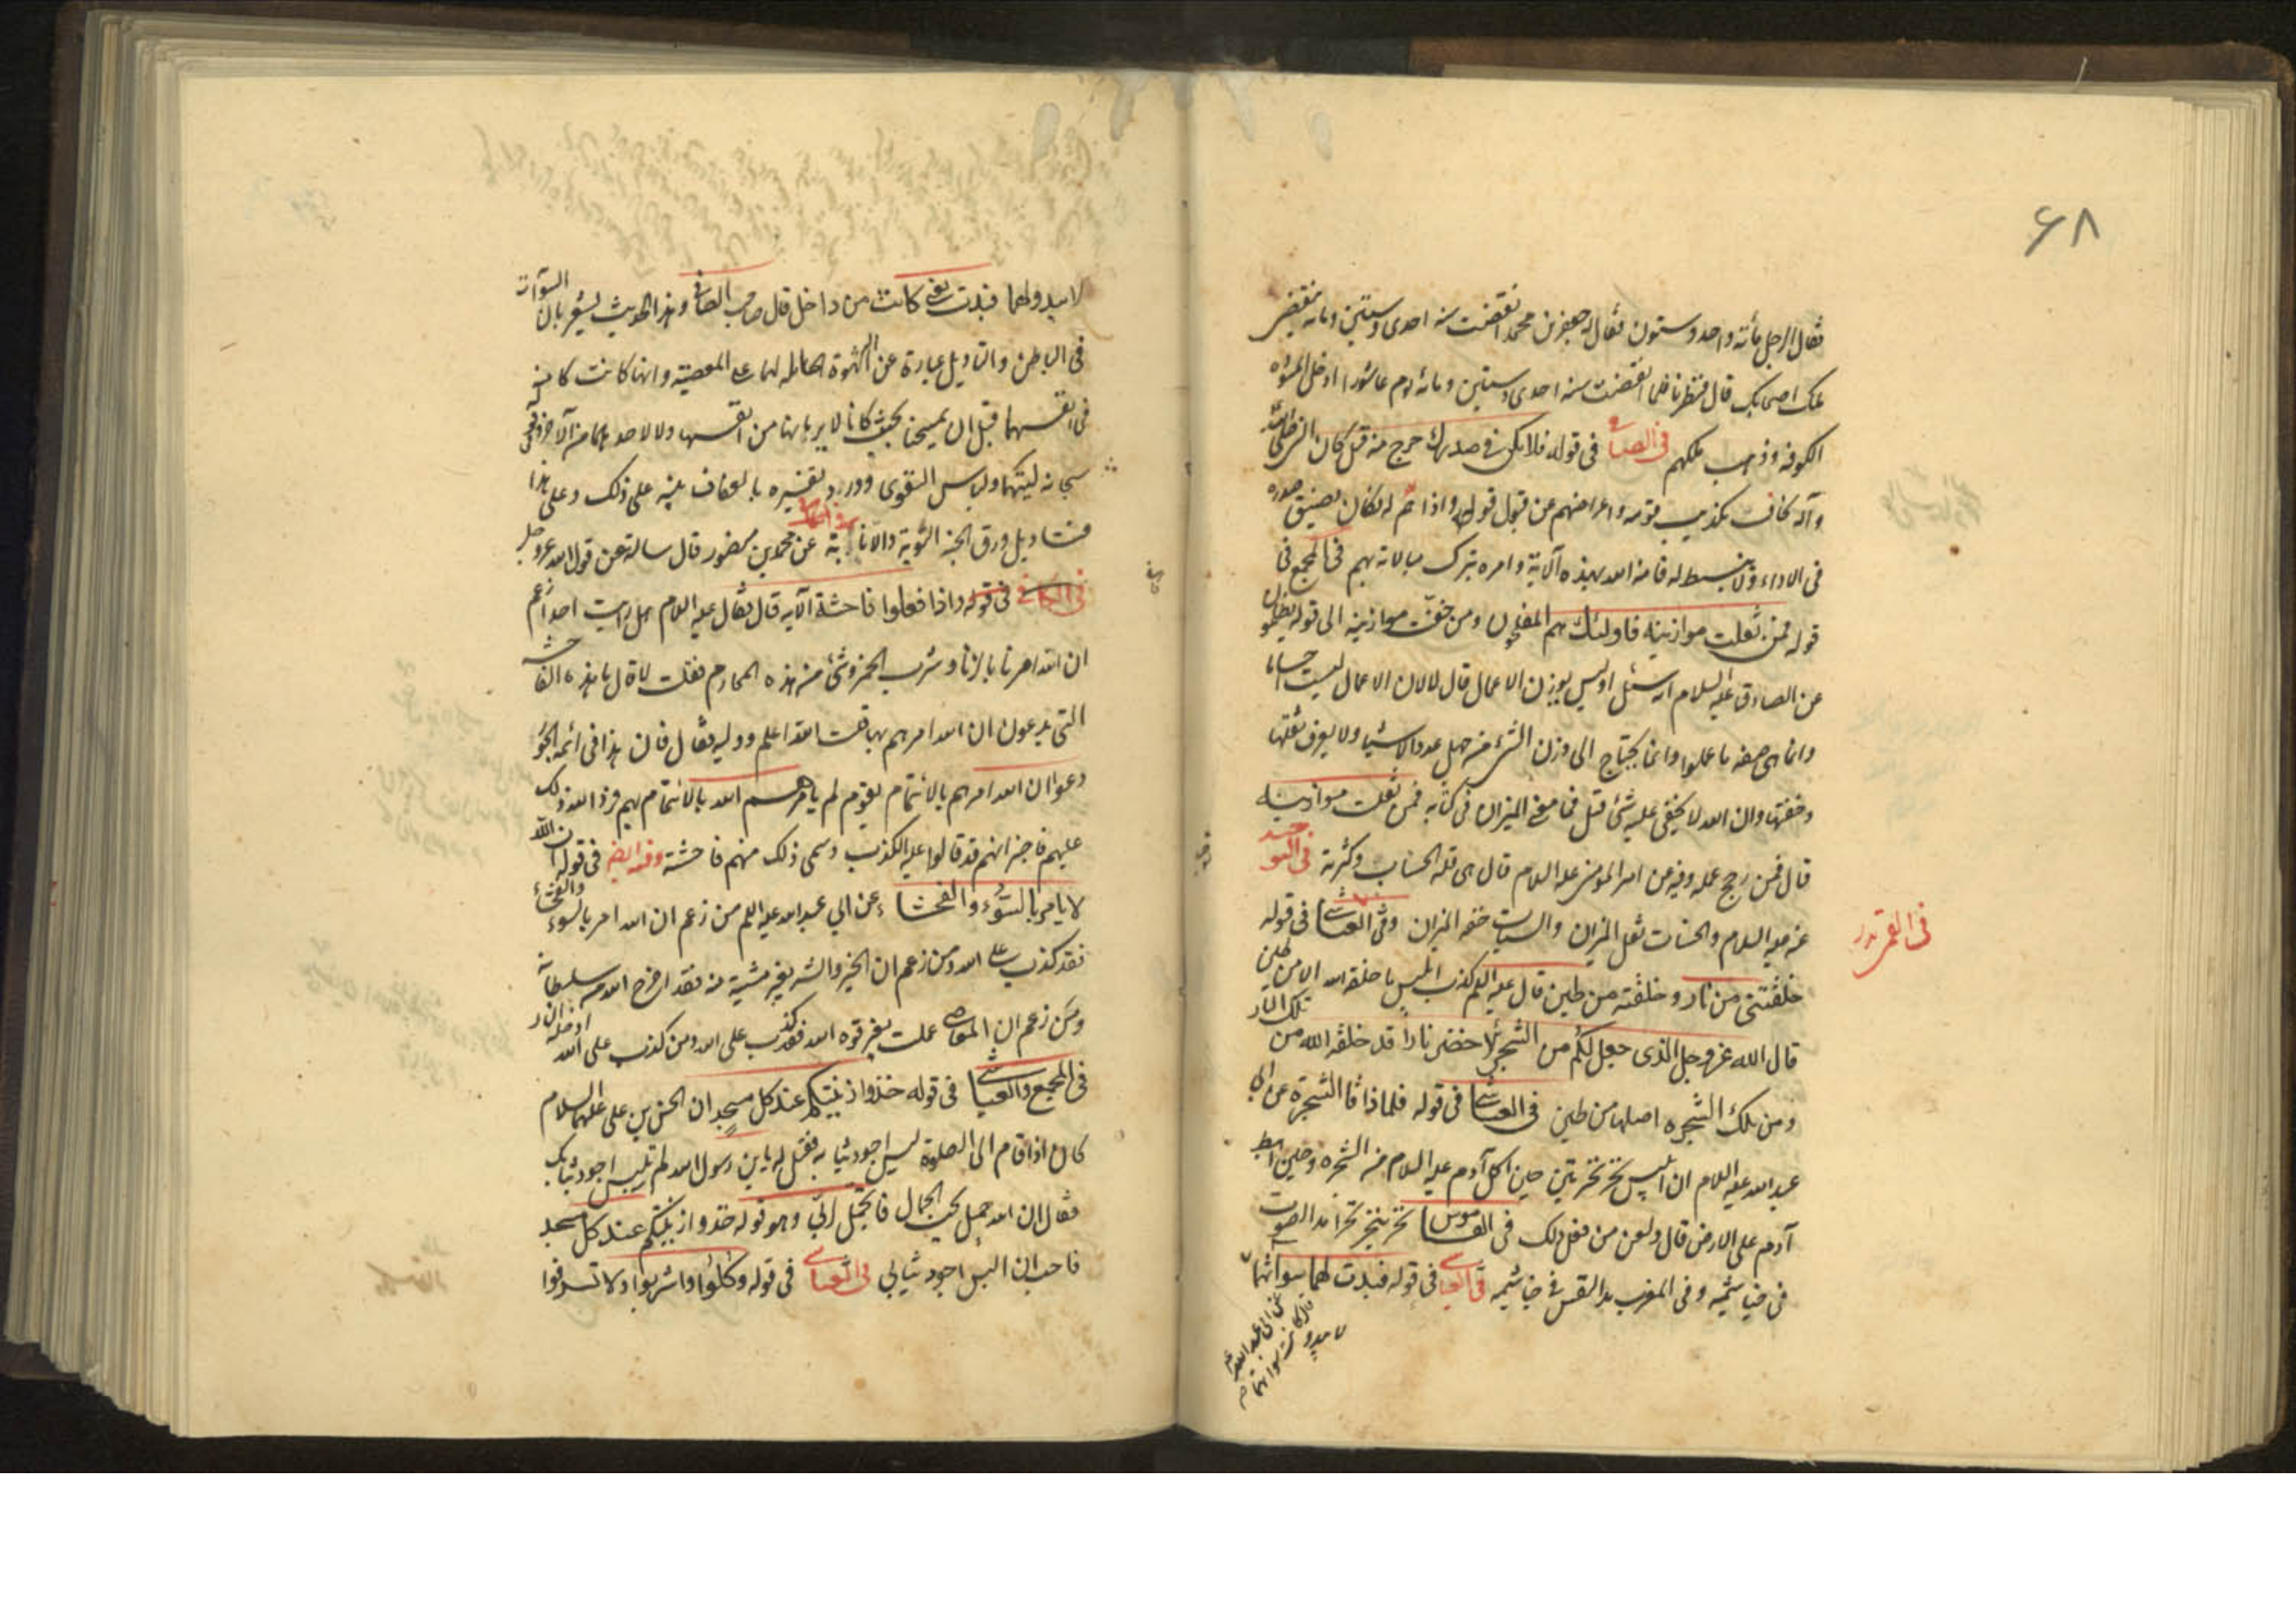 ۶۸
فقال الرجل مأته واحد وستون فقال له جعفر بن محمد اذا انقضت سنه احدى وستين ومائه ينقضي
ملك اصحابك قال فنظرنا فلما انقضت سنه احدى وستين ومائه يوم عاشورا ادخل المسوده
الكوفه وذهب ملكهم في الصافي في قوله فلا يكن في صدرك حرج منه قيل كان النبي صلى الله عليه
وآله يخاف تكذيب قومه واعراضهم عن قبول قوله واذاهم له فكان يضيق صدره
في الاداء ولا ينبسط له فامنه الله بهذه الآية وامره بترك مبالاته بهم في المجمع في
قوله فمن ثقلت موازينه فاولئك هم المفلحون ومن خفت موازينه الى قوله يظلمون
عن الصادق عليه السلام انه سئل اوليس يوزن الاعمال قال لا لان الاعمال ليست اجساما
وانما هى صفه ما عملوا وانما يحتاج الى وزن الشئ من جهل عدد الاشيا ولا يعرف ثقلها
وخفتها وان الله لا يخفى عليه شئ قيل فما معنى الميزان في كتابه فمن ثقلت موازينه
قال فمن رجح عمله وفيه عن امير المؤمنين عليه السلام قال هى قله الحساب وكثرته في التوحيد
عنه عليه السلام والحسنات ثقل الميزان والسيئات خفه الميزان وفي العياشي في قوله
في القمر تدر
خلقتني من نار وخلقته من طين قال عليه السلم كذب ابليس ما خلقه الله الا من طين
قال الله عز وجل الذى جعل لكم من الشجر الاخضر نارا قد خلقه الله من تلك النار
ومن تلك الشجره اصلها من طين في العياشي في قوله فلما ذاقا الشجرة عن ابي
عبد الله عليه السلام ان ابليس نخر نخرتين حين اكل آدم عليه السلام من الشجره وحين اهبط
آدم على الارض قال ولعن من فعل ذلك في القاموس نخر ينخر نخرا مد الصوت
في خياشيمه وفي المغرب مد النفس في خياشيمه في العياشي في قوله فبدت لهما سواتهما
عن ابى عبد الله
قال كانت سواتهما
لا يبدو
لا يبدو لهما فبدت يعنى كانت من داخل قال صاحب الصافي وهذا الحديث يشعر بان السوآت
في الباطن والتاويل عبارة عن الشهوة الحاملة لهما على المعصيته وانها كانت كامنه
في انفسهما قبل ان يمسحنا بحيث كانا لا يريانها من انفسهما ولا لاحدهما من الآخر وفي
سبحانه ليتهما ولباس التقوى وورد تفسيره بالعفاف ينبه على ذلك وعلى هذا
فتاويل ورق الجنه التوبة والانابة في الكافي عن محمد بن منصور قال سالته عن قول الله عز وجل
في قوله واذا فعلوا فاحشة الآيه قال فقال عليه السلام هل رايت احدا زعم
ان الله امرنا بالزنا وشرب الخمر وشئ من هذه المحارم فقلت لا قال ما هذه الفاحشه
التى يدعون ان الله امرهم بها قلت الله اعلم ووليه فقال فان هذا في ائمه الجور
دعوا ان الله امرهم بالائتمام بقوم لم يامرهم الله بالائتمام بهم فرد الله ذلك
عليهم فاخبر انهم قد قالوا عليه الكذب وسمى ذلك منهم فاحشة وفيه ايضا في قوله ان الله
لا يامر بالسوء والفحشاء عن ابي عبد الله عليه السلم من زعم ان الله امر بالسوء والفحشاء
فقد كذب على الله ومن زعم ان الخير والشر بغير مشيته منه فقد اخرج الله من سلطانه
ومن زعم ان المعاصي عملت بغير قوه الله فقد كذب على الله ومن كذب على الله ادخله النار
في المجمع والعياشي في قوله خذوا زينتكم عند كل مسجد ان الحسن بن على عليهما السلام
كان اذا قام الى الصلوة لبس اجود ثيابه فقيل له يا بن رسول الله لم تلبس اجود ثيابك
فقال ان الله جميل يحب الجمال فاتجمل لربي وهو قوله خذوا زينتكم عند كل مسجد
فاحب ان البس اجود ثيابي في العياشي في قوله وكلوا واشربوا ولا تسرفوا